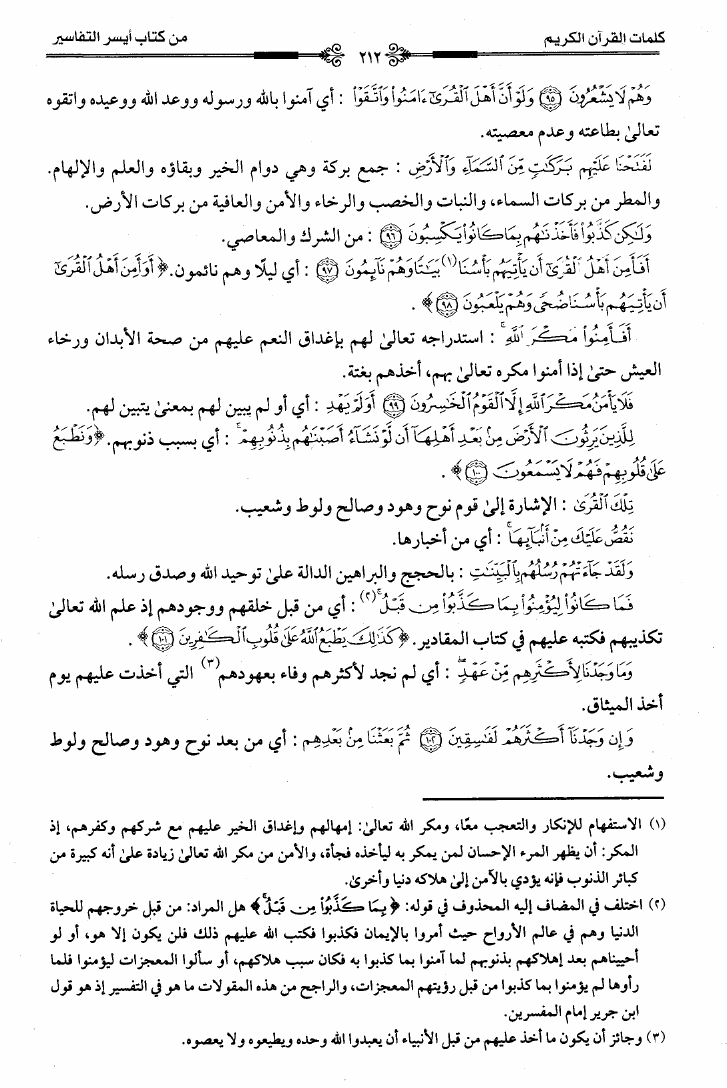 كلمات القرآن الكريم
٢١٢
من كتاب أيسر التفاسير
وَهُمْ لَا يَشْعُرُونَ ﴿٩٥﴾ وَلَوْ أَنَّ أَهْلَ ٱلْقُرَىٰٓ ءَامَنُوا۟ وَٱتَّقَوْا۟ : أي آمنوا بالله ورسوله ووعد الله ووعيده واتقوه
تعالىٰ بطاعته وعدم معصيته.
لَفَتَحْنَا عَلَيْهِم بَرَكَٰتٍ مِّنَ ٱلسَّمَآءِ وَٱلْأَرْضِ : جمع بركة وهي دوام الخير وبقاؤه والعلم والإلهام.
والمطر من بركات السماء، والنبات والخصب والرخاء والأمن والعافية من بركات الأرض.
وَلَٰكِن كَذَّبُوا۟ فَأَخَذْنَٰهُم بِمَا كَانُوا۟ يَكْسِبُونَ ﴿٩٦﴾ : من الشرك والمعاصي.
أَفَأَمِنَ أَهْلُ ٱلْقُرَىٰٓ أَن يَأْتِيَهُم بَأْسُنَا(١) بَيَٰتًا وَهُمْ نَآئِمُونَ ﴿٩٧﴾ : أي ليلًا وهم نائمون. ﴿أَوَأَمِنَ أَهْلُ ٱلْقُرَىٰٓ
أَن يَأْتِيَهُم بَأْسُنَا ضُحًى وَهُمْ يَلْعَبُونَ ﴿٩٨﴾﴾ .
أَفَأَمِنُوا۟ مَكْرَ ٱللَّهِ ۚ : استدراجه تعالىٰ لهم بإغداق النعم عليهم من صحة الأبدان ورخاء
العيش حتىٰ إذا أمنوا مكره تعالىٰ بهم، أخذهم بغتة.
فَلَا يَأْمَنُ مَكْرَ ٱللَّهِ إِلَّا ٱلْقَوْمُ ٱلْخَٰسِرُونَ ﴿٩٩﴾ أَوَلَمْ يَهْدِ : أي أو لم يبين لهم بمعنىٰ يتبين لهم.
لِلَّذِينَ يَرِثُونَ ٱلْأَرْضَ مِنۢ بَعْدِ أَهْلِهَآ أَن لَّوْ نَشَآءُ أَصَبْنَٰهُم بِذُنُوبِهِمْ ۚ : أي بسبب ذنوبهم. ﴿وَنَطْبَعُ
عَلَىٰ قُلُوبِهِمْ فَهُمْ لَا يَسْمَعُونَ ﴿١٠٠﴾﴾ .
تِلْكَ ٱلْقُرَىٰ : الإشارة إلىٰ قوم نوح وهود وصالح ولوط وشعيب.
نَقُصُّ عَلَيْكَ مِنْ أَنۢبَآئِهَا ۚ : أي من أخبارها.
وَلَقَدْ جَآءَتْهُمْ رُسُلُهُم بِٱلْبَيِّنَٰتِ : بالحجج والبراهين الدالة علىٰ توحيد الله وصدق رسله.
فَمَا كَانُوا۟ لِيُؤْمِنُوا۟ بِمَا كَذَّبُوا۟ مِن قَبْلُ ۚ(٢) : أي من قبل خلقهم ووجودهم إذ علم الله تعالىٰ
تكذيبهم فكتبه عليهم في كتاب المقادير. ﴿كَذَٰلِكَ يَطْبَعُ ٱللَّهُ عَلَىٰ قُلُوبِ ٱلْكَٰفِرِينَ ﴿١٠١﴾﴾ .
وَمَا وَجَدْنَا لِأَكْثَرِهِم مِّنْ عَهْدٍ ۖ : أي لم نجد لأكثرهم وفاء بعهودهم(٣) التي أخذت عليهم يوم
أخذ الميثاق.
وَإِن وَجَدْنَآ أَكْثَرَهُمْ لَفَٰسِقِينَ ﴿١٠٢﴾ ثُمَّ بَعَثْنَا مِنۢ بَعْدِهِم : أي من بعد نوح وهود وصالح ولوط
وشعيب.
(١) الاستفهام للإنكار والتعجب معًا، ومكر الله تعالىٰ: إمهالهم وإغداق الخير عليهم مع شركهم وكفرهم، إذ
المكر: أن يظهر المرء الإحسان لمن يمكر به ليأخذه فجأة، والأمن من مكر الله تعالىٰ زيادة علىٰ أنه كبيرة من
كبائر الذنوب فإنه يؤدي بالآمن إلىٰ هلاكه دنيا وأخرىٰ.
(٢) اختلف في المضاف إليه المحذوف في قوله: ﴿بِمَا كَذَّبُوا۟ مِن قَبْلُ ۚ﴾ هل المراد: من قبل خروجهم للحياة
الدنيا وهم في عالم الأرواح حيث أمروا بالإيمان فكذبوا فكتب الله عليهم ذلك فلن يكون إلا هو، أو لو
أحييناهم بعد إهلاكهم بذنوبهم لما آمنوا بما كذبوا به فكان سبب هلاكهم، أو سألوا المعجزات ليؤمنوا فلما
رأوها لم يؤمنوا بما كذبوا من قبل رؤيتهم المعجزات، والراجح من هذه المقولات ما هو في التفسير إذ هو قول
ابن جرير إمام المفسرين.
(٣) وجائز أن يكون ما أخذ عليهم من قبل الأنبياء أن يعبدوا الله وحده ويطيعوه ولا يعصوه.